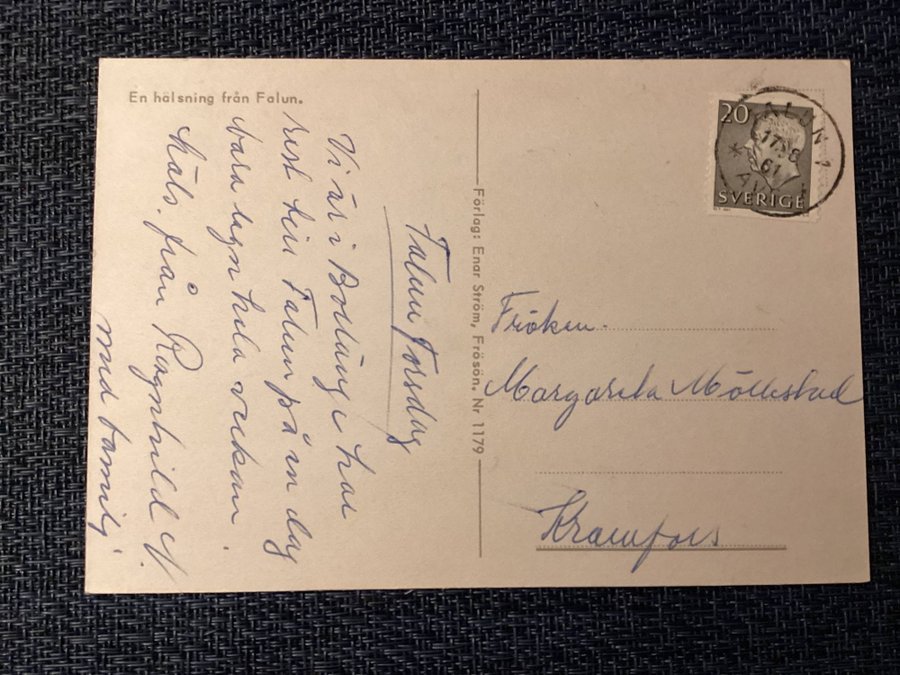 En hälsning från Falun.
Falun Torsdag
Vi är i Bollänge har
rest till Falun på en dag
bara regn hela veckan.
Häls. från Ragnhild N.
med familj
Förlag: Enar Ström, Frösön. Nr 1179
20
SVERIGE
FALUN 1
17.8
61
Fröken.
Margareta Möllestad
Kramfors